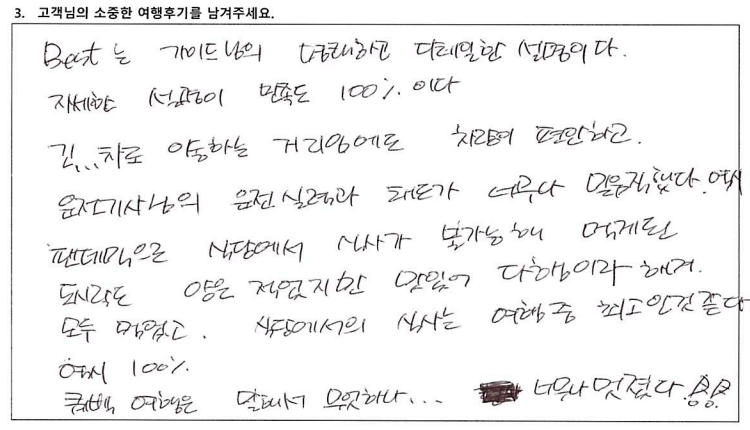 3. 고객님의 소중한 여행후기를 남겨주세요.
Best는 가이드님의 명쾌하고 디테일한 설명이다.
자세한 설명이 만족도 100% 이다
긴... 차로 이동하는 거리임에도 차량이 편안하고.
운전기사님의 운전실력과 태도가 너무나 믿음직했다. 역시
팬데믹으로 식당에서 식사가 불가능해 먹게된
도시락도 양은 적었지만 맛있어 다행이라 하며.
모두 먹었고. 식당에서의 식사는 여행중 최고인것 같다
역시 100%
퀘백 여행은 말해서 무엇하나... 너무나 멋졌다.